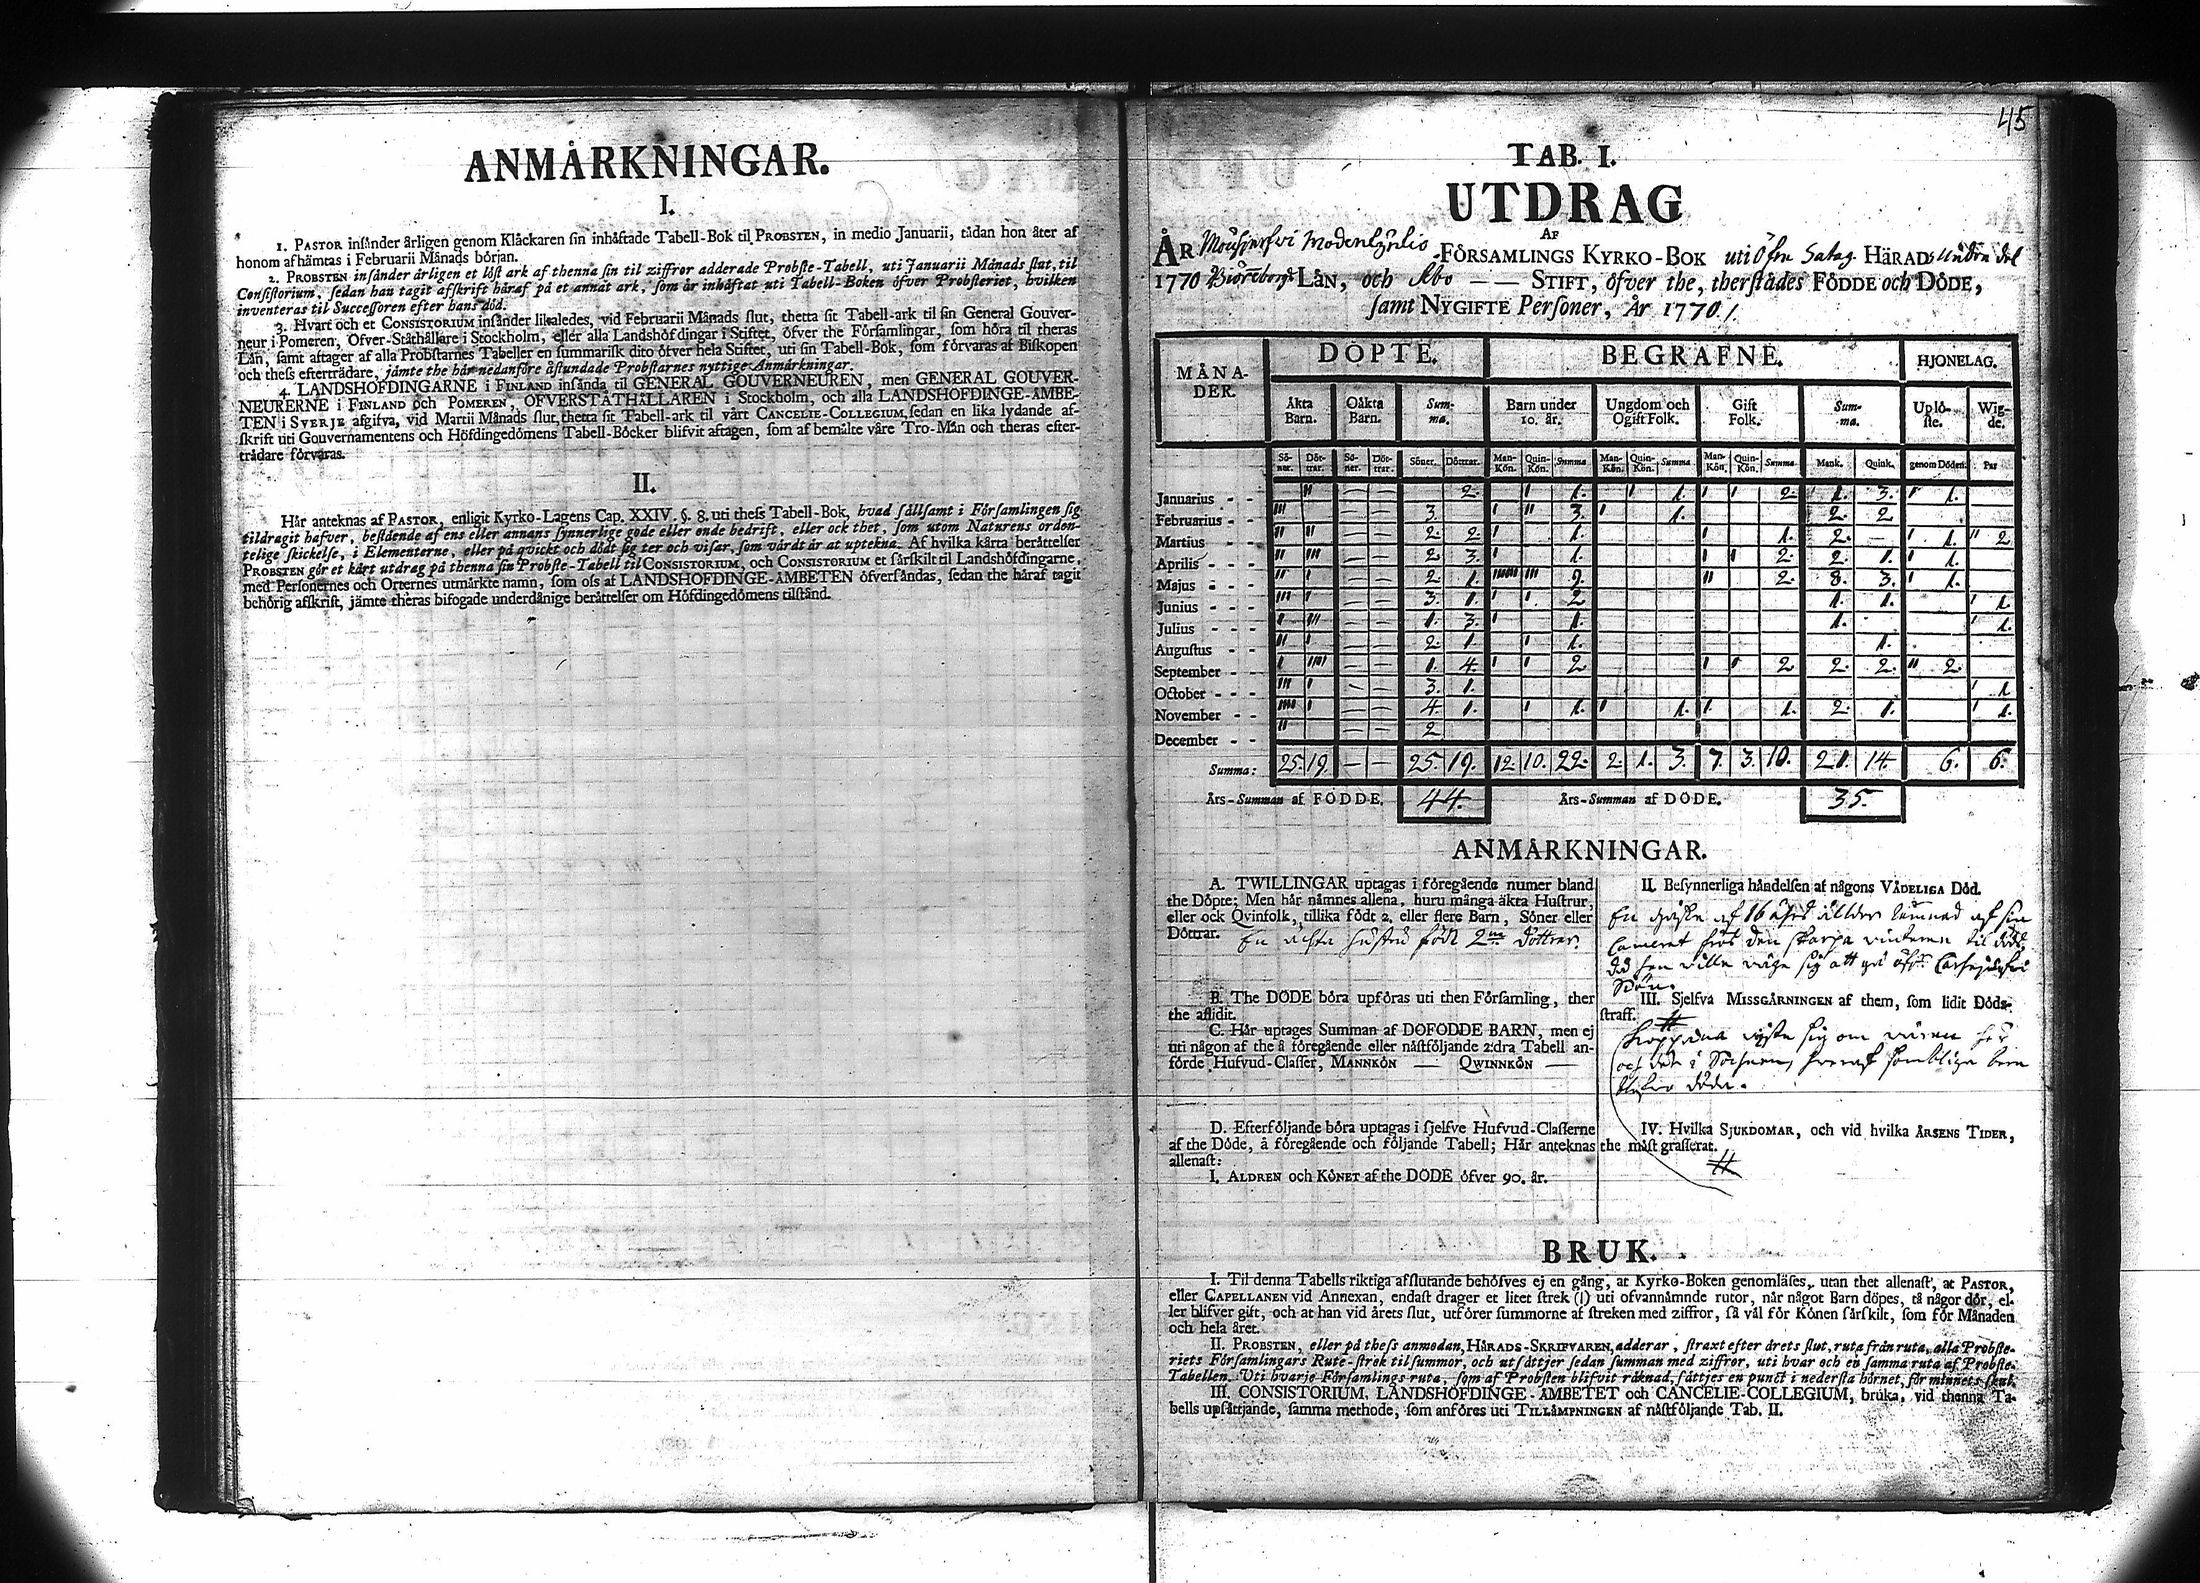 ANMÅRKNINGAR.
I.
1. PASTOR insånder årligen genom Klåckaren sin inhåftade Tabell-Bok til PROBSTEN, in medio Januarii, tådan hon åter af
honom afhåmtas i Februarii Månads början.
2. PROBSTEN insånder årligen et löst ark af thenna sin til ziffror adderade Probste-Tabell, uti Januarii Månads slut, til
Consistorium, sedan han tagit afskrift håraf på et annat ark, som år inhåftat uti Tabell-Boken öfver Probsteriet, hvilken
inventeras til Successoren efter hans död.
3. Hvart och et CONSISTORIUM insånder likaledes, vid Februarii Månads slut, thetta sit Tabell-ark til sin General Gouver-
neur i Pomeren, Öfver-Ståthållare i Stockholm, eller alla Landshöfdingar i Stiftet, öfver the Församlingar, som höra til theras
Lån, samt aftager af alla Probstarnes Tabeller en summarisk dito öfver hela Stiftet, uti sin Tabell-Bok, som förvaras af Biskopen
och thess eftertrådare, jåmte the hår nedanföre åstundade Probstarnes nyttige Anmårkningar.
4. LANDSHÖFDINGARNE i FINLAND insånda til GENERAL GOUVERNEUREN, men GENERAL GOUVER-
NEURERNE i FINLAND och POMEREN, ÖFVERSTÅTHÅLLAREN i Stockholm, och alla LANDSHÖFDINGE-ÅMBE-
TEN i SVERJE afgifva, vid Martii Månads slut, thetta sit Tabell-ark til vårt CANCELIE-COLLEGIUM, sedan en lika lydande af-
skrift uti Gouvernamentens och Höfdingedömens Tabell-Böcker blifvit aftagen, som af bemålte våre Tro-Mån och theras efter-
trådare förvaras.
II.
Hår anteknas af PASTOR, enligit Kyrko-Lagens Cap. XXIV. §. 8. uti thess Tabell-Bok, hvad sållsamt i Församlingen sig
tildragit hafver, bestående af ens eller annans synnerlige gode eller onde bedrift, eller ock thet, som utom Naturens orden-
telige skickelse, i Elementerne, eller på qvickt och dödt sig ter och visar, som vårdt år at uptekna. Af hvilka kårta beråttelser
PROBSTEN gör et kårt utdrag på thenna sin Probste-Tabell til CONSISTORIUM, och CONSISTORIUM et sårskilt til Landshöfdingarne,
med Personernes och Orternes utmårkte namn, som oss af LANDSHÖFDINGE-ÅMBETEN öfversåndas, sedan the håraf tagit
behörig afskrift, jåmte theras bifogade underdånige beråttelser om Höfdingedömens tilstånd.
45
TAB. I.
UTDRAG
AF
ÅR FÖRSAMLINGS KYRKO-BOK uti Öfre Satag. HÄRADs
1770 Biörneborgs LÅN, och Åbo — — STIFT, öfver the, therstådes FÖDDE och DÖDE,
samt NYGIFTE Personer, År 1770.
MÅNADER. DÖPTE. BEGRAFNE. HJONELAG.
Åkta Barn. Oåkta Barn. Summa. Barn under 10. år. Ungdom och Ogift Folk. Gift Folk. Summa. Uplöste. Wigde.
Söner. Döttrar. Söner. Döttrar. Söner. Döttrar. Man-Kön. Quin-Kön. Summa Man-Kön. Quin-Kön. Summa Man-Kön. Quin-Kön. Summa Mank. Quink. genom Döden. Par
Januarius - - " — — 2. ' 1. ' 1. ' ' 2. 1. 3. ' 1.
Februarius - - ''' — — 3. ' '' 3. ' 1. 2. 2
Martius - - - '' '' — — 2. 2. ' 1. ' 1. 2. — ' 1. '' 2
Aprilis - - - '' ''' — — 2. 3. ' 1. ' ' 2. 2. 1. ' 1.
Majus - - - '' ' — — 2. 1. '''''' ''' 9. '' 2. 8. 3. ' 1.
Junius - - - ''' ' — — 3. 1. ' ' 2 1. 1. ' 1.
Julius - - - ' ''' — — 1. 3. ' 1. 1. ' 1.
Augustus - - '' ' — — 2. 1. ' 1. 1.
September - - - ' '''' — — 1. 4. ' ' 2 ' ' 2 2. 2. '' 2.
October - - - ''' ' — — 3. 1. ' 1
November - - '''' ' — — 4. 1. ' 1. ' 1. ' 1. 2. 1. ' 1.
December - - '' — — 2
Summa: 25. 19. — — 25. 19. 12. 10. 22. 2. 1. 3. 7. 3. 10. 21. 14. 6. 6.
Års-Summan af FÖDDE. 44. Års-Summan af DÖDE. 35.
ANMÅRKNINGAR.
A. TWILLINGAR uptagas i föregående numer bland
the Döpte; Men hår nåmnes allena, huru många åkta Hustrur,
eller ock Qvinfolk, tillika födt 2. eller flere Barn, Söner eller
Döttrar. En ächta hustru födt 2ne Döttrar.
B. The DÖDE böra upföras uti then Församling, ther
the aflidit.
C. Hår uptages Summan af DÖFÖDDE BARN, men ej
uti någon af the å föregående eller nåstföljande 2:dra Tabell an-
förde Hufvud-Classer, MANNKÖN — QWINNKÖN —
D. Efterföljande böra uptagas i sjelfve Hufvud-Classerne
af the Döde, å föregående och följande Tabell; Hår anteknas
allenast:
I. ÅLDREN och KÖNET af the DÖDE öfver 90. år.
II. Besynnerliga håndelsen af någons VÅDELIGA Död.
En af 16 åhrs ållder af sin
frös den skarpa vinteren til död
då han ville våga sig att gå öfver
III. Sjelfva MISSGÅRNINGEN af them, som lidit Döds-
straff.
#
Kopporna yste sig om våren här
och der i Sochnen, hvaraf somblige barn
blefvo döde.
IV. Hvilka SJUKDOMAR, och vid hvilka ÅRSENS TIDER,
the måst grasserat.
#
BRUK.
I. Til denna Tabells riktiga afslutande behöfves ej en gång, at Kyrko-Boken genomläses, utan thet allenast, at PASTOR,
eller CAPELLANEN vid Annexan, endast drager et litet strek (1) uti ofvannåmnde rutor, når något Barn döpes, tå någor dör, el-
ler blifver gift, och at han vid årets slut, utförer summorne af streken med ziffror, så vål för Könen sårskilt, som för Månaden
och hela året.
II. PROBSTEN, eller på thess anmodan, HÅRADS-SKRIFVAREN, adderar, straxt efter årets slut, ruta från ruta, alla Probste-
riets Församlingars Rute-strek til summor, och utsåttjer sedan summan med ziffror, uti hvar och en samma ruta af Probste-
Tabellen. Uti hvarje Församlings ruta, som af Probsten blifvit råknad, såttjes en punct i nedersta hörnet, för minnets skul.
III. CONSISTORIUM, LANDSHÖFDINGE-ÅMBETET och CANCELIE-COLLEGIUM, bruka, vid thenna Ta-
bells upsåttjande, samma methode, som anföres uti TILLÅMPNINGEN af nåstföljande Tab. II.